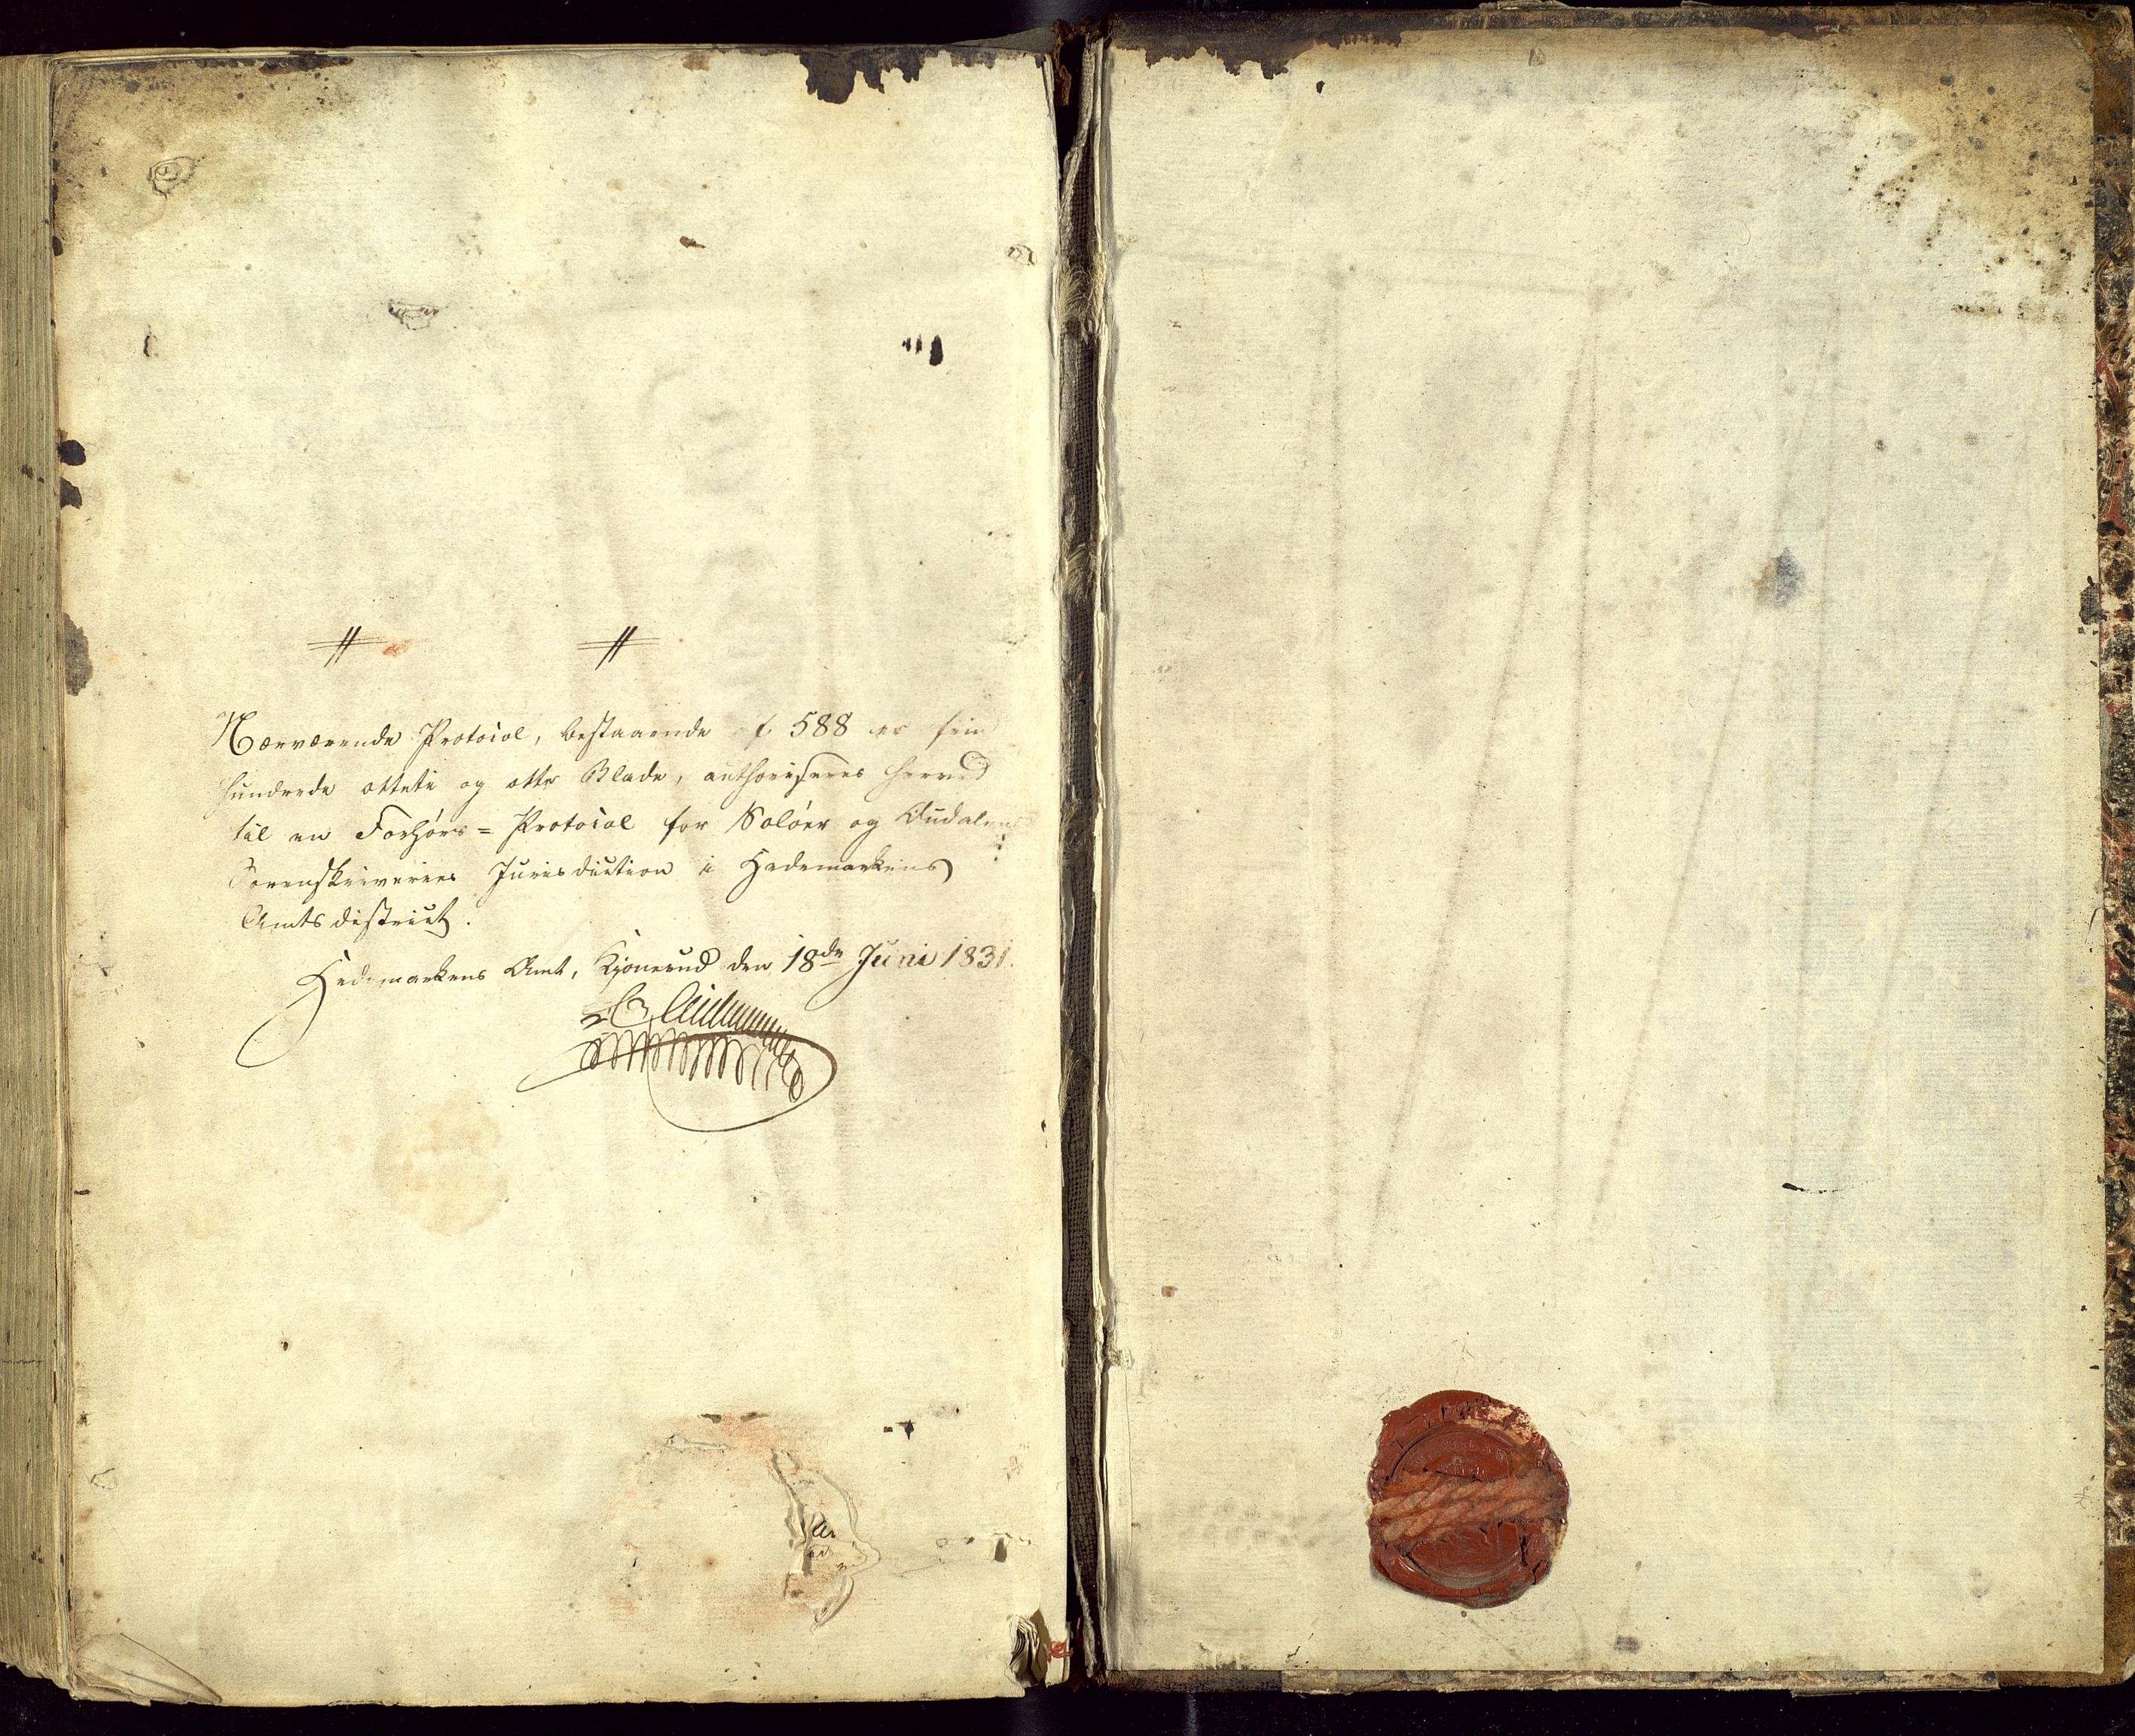 Nærværende Protocol, bestaaende af 588 er fem
hundrede otteti og otte Blade, authoriseres herved
til en Forhørs=Protocol for Soløer og Oudalens
Sorenskriveries Jurisdiction i Hedemarkens
Amtsdistrict.
Hedemarkens Amt, Kjonerud den 18de Juni 1831.